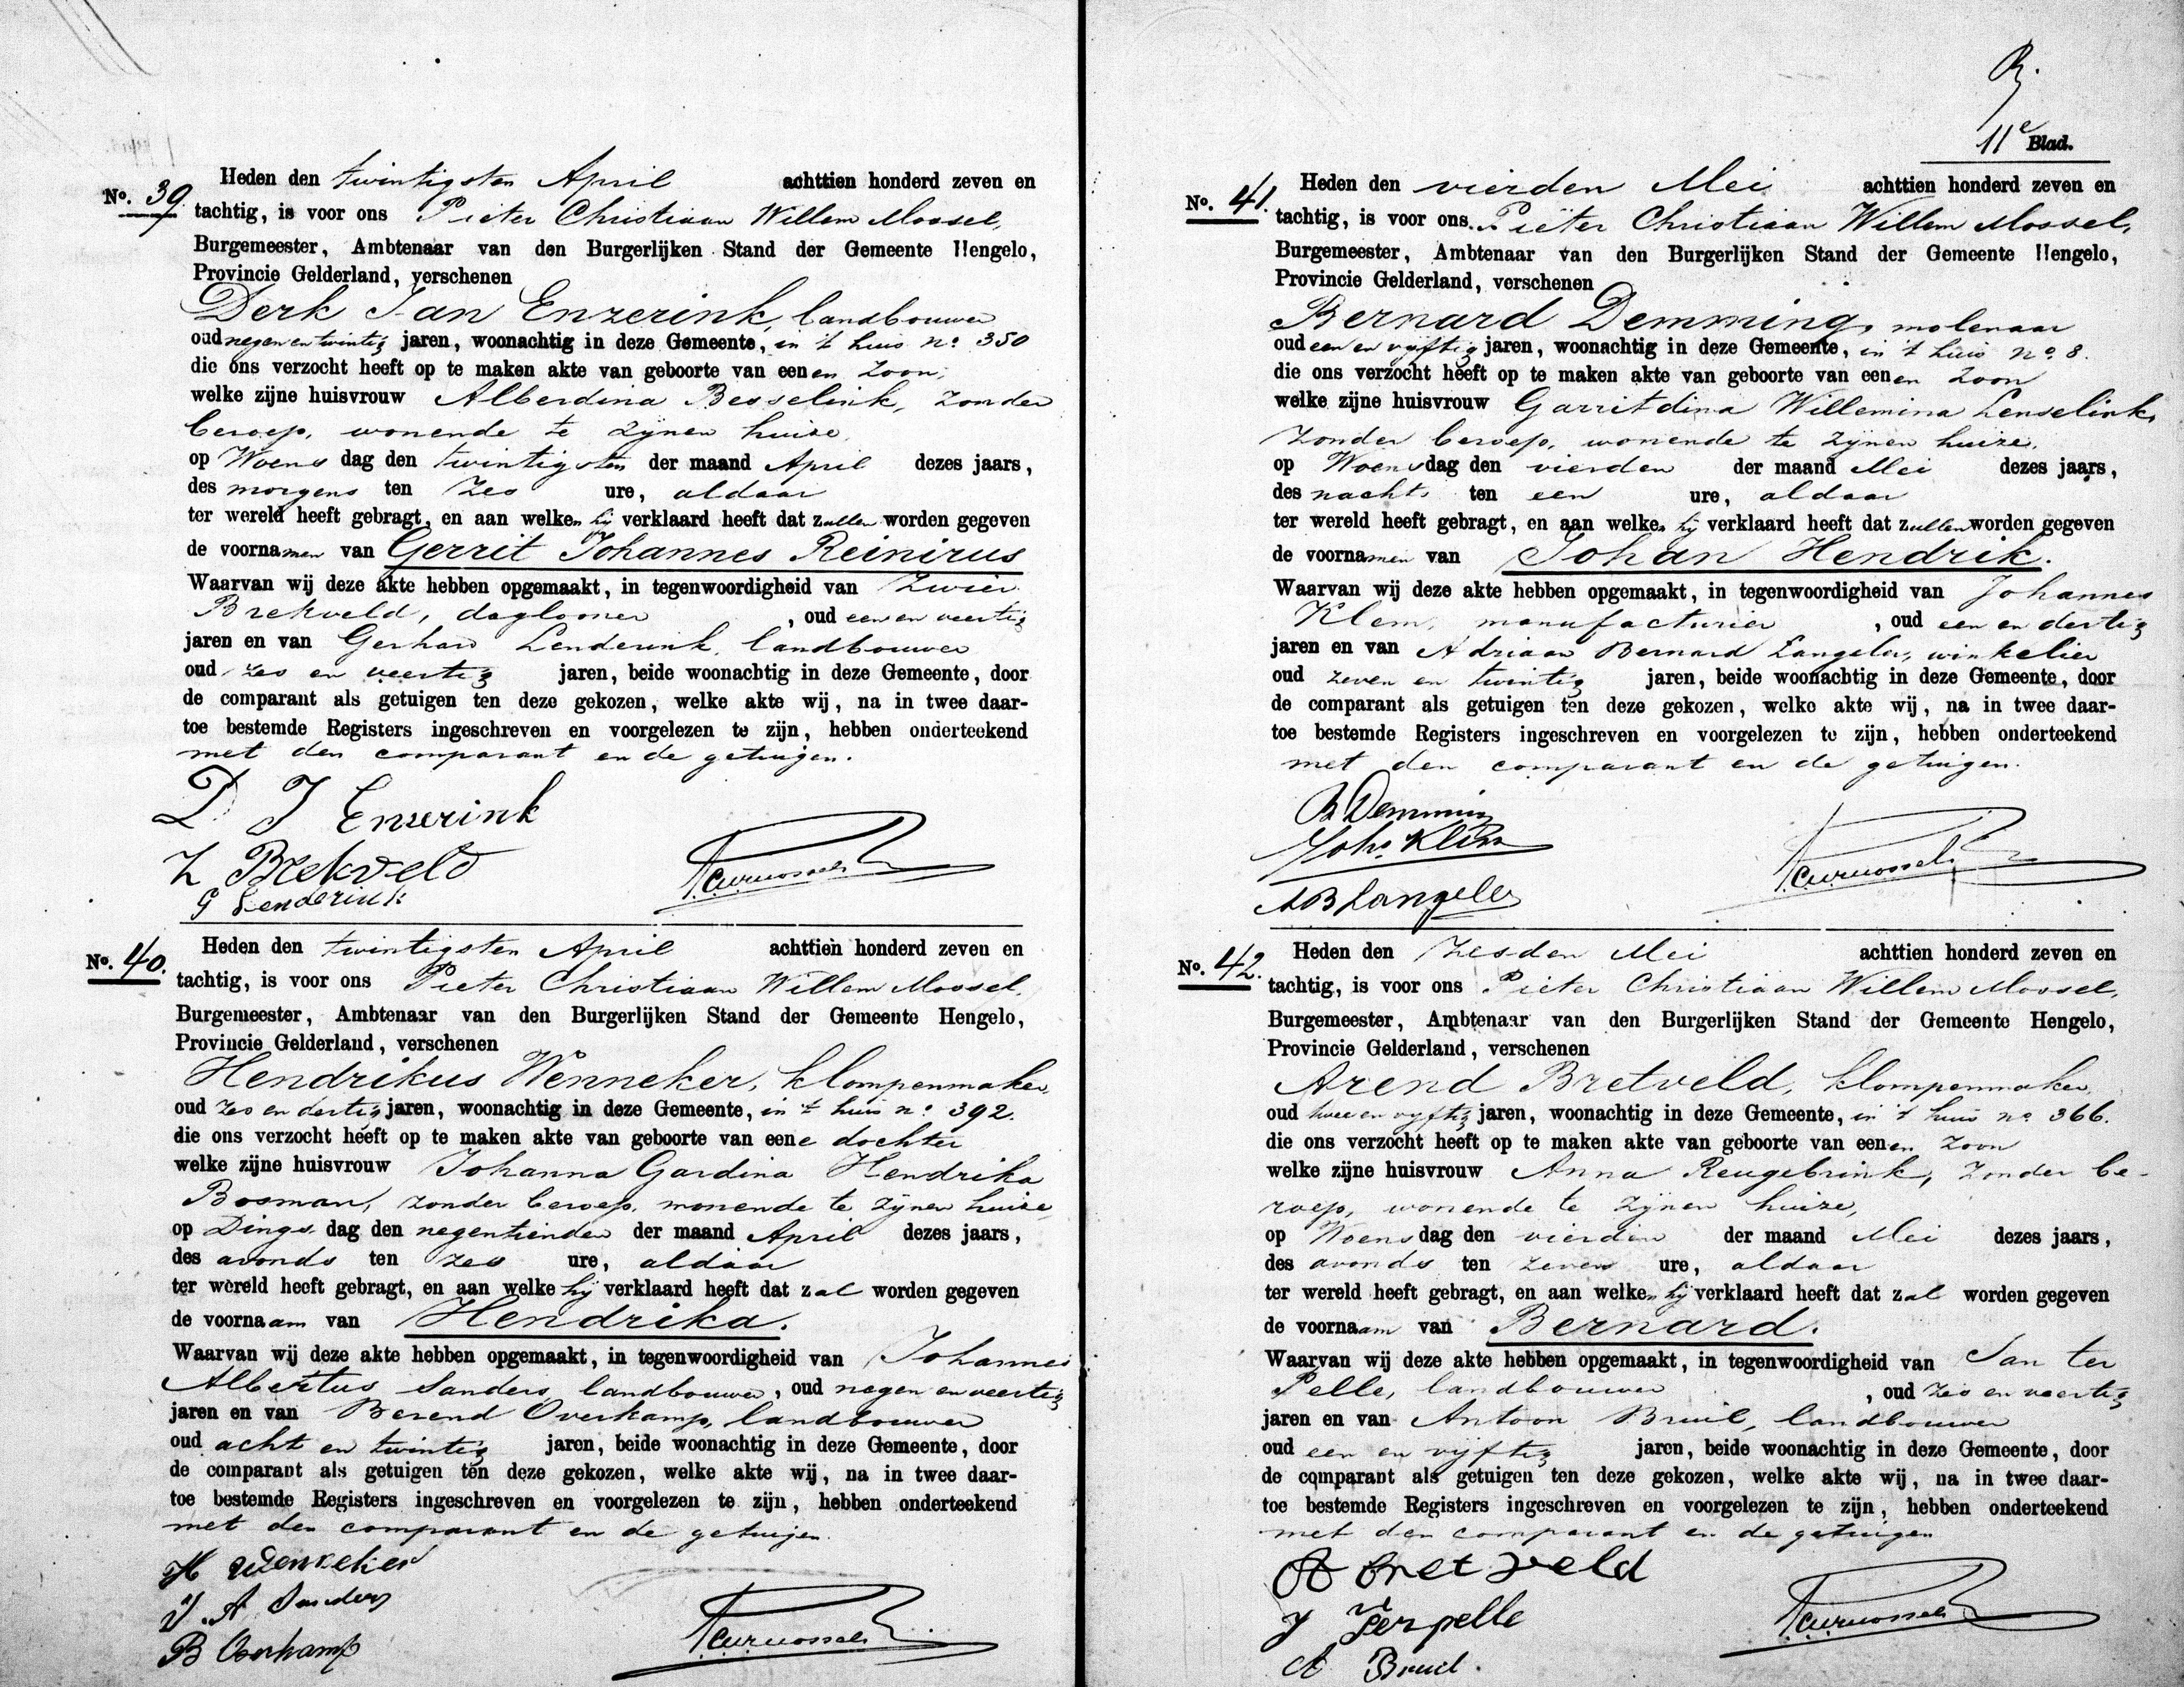 No. 39.
Heden den twintigsten April achttien honderd zeven en
tachtig, is voor ons Pieter Christiaan Willem Mossel,
Burgemeester, Ambtenaar van den Burgerlijken Stand der Gemeente Hengelo,
Provincie Gelderland, verschenen
Derk Jan Enzerink, landbouwer
oud negen en twintig jaren, woonachtig in deze Gemeente, in 't huis no. 350
die ons verzocht heeft op te maken akte van geboorte van eenen zoon,
welke zijne huisvrouw Alberdina Besselink, zonder
beroep, wonende te zijnen huize,
op Woensdag den twintigsten der maand April dezes jaars,
des morgens ten zes ure, aldaar
ter wereld heeft gebragt, en aan welken hij verklaard heeft dat zullen worden gegeven
de voornamen van Gerrit Johannes Reinirus
Waarvan wij deze akte hebben opgemaakt, in tegenwoordigheid van Zwier
Brekveld, daglooner, oud een en veertig
jaren en van Gerhard Lenderink, landbouwer
oud zes en veertig jaren, beide woonachtig in deze Gemeente, door
de comparant als getuigen ten deze gekozen, welke akte wij, na in twee daar-
toe bestemde Registers ingeschreven en voorgelezen te zijn, hebben onderteekend
met den comparant en de getuigen.
D J Enzerink
Z Brekveld
G Lenderink
PCWMossel
No. 40.
Heden den twintigsten April achttien honderd zeven en
tachtig, is voor ons Pieter Christiaan Willem Mossel,
Burgemeester, Ambtenaar van den Burgerlijken Stand der Gemeente Hengelo,
Provincie Gelderland, verschenen
Hendrikus Wenneker, klompenmaker,
oud zes en dertig jaren, woonachtig in deze Gemeente, in 't huis no. 392.
die ons verzocht heeft op te maken akte van geboorte van eene dochter
welke zijne huisvrouw Johanna Gardina Hendrika
Bosman, zonder beroep, wonende te zijnen huize,
op Dingsdag den negentienden der maand April dezes jaars,
des avonds ten zes ure, aldaar
ter wereld heeft gebragt, en aan welke hij verklaard heeft dat zal worden gegeven
de voornaam van Hendrika.
Waarvan wij deze akte hebben opgemaakt, in tegenwoordigheid van Johannes
Albertus Sanders, landbouwer, oud negen en veertig
jaren en van Berend Overkamp, landbouwer
oud acht en twintig jaren, beide woonachtig in deze Gemeente, door
de comparant als getuigen ten deze gekozen, welke akte wij, na in twee daar-
toe bestemde Registers ingeschreven en voorgelezen te zijn, hebben onderteekend
met den comparant en de getuigen.
H Wenneker
J. A Sanders
B Overkamp
PCWMossel
11e Blad.
No. 41.
Heden den vierden Mei achttien honderd zeven en
tachtig, is voor ons Pieter Christiaan Willem Mossel,
Burgemeester, Ambtenaar van den Burgerlijken Stand der Gemeente Hengelo,
Provincie Gelderland, verschenen
Bernard Demming, molenaar
oud een en vijftig jaren, woonachtig in deze Gemeente, in 't huis no. 8.
die ons verzocht heeft op te maken akte van geboorte van eenen zoon
welke zijne huisvrouw Garritdina Willemina Lenselink,
zonder beroep, wonende te zijnen huize,
op Woensdag den vierden der maand Mei dezes jaars,
des nachts ten een ure, aldaar
ter wereld heeft gebragt, en aan welken hij verklaard heeft dat zullen worden gegeven
de voornamen van Johan Hendrik.
Waarvan wij deze akte hebben opgemaakt, in tegenwoordigheid van Johannes
Klem, manufacturier, oud een en dertig
jaren en van Adriaan Bernard Langeler, winkelier
oud zeven en twintig jaren, beide woonachtig in deze Gemeente, door
de comparant als getuigen ten deze gekozen, welke akte wij, na in twee daar-
toe bestemde Registers ingeschreven en voorgelezen te zijn, hebben onderteekend
met den comparant en de getuigen.
B Demming
Johs Klem
AB Langeler
PCWMossel
No. 42.
Heden den zesden Mei achttien honderd zeven en
tachtig, is voor ons Pieter Christiaan Willem Mossel,
Burgemeester, Ambtenaar van den Burgerlijken Stand der Gemeente Hengelo,
Provincie Gelderland, verschenen
Arend Bretveld, klompenmaker,
oud twee en vijftig jaren, woonachtig in deze Gemeente, in 't huis no. 366.
die ons verzocht heeft op te maken akte van geboorte van eenen zoon
welke zijne huisvrouw Anna Reugebrink, zonder be-
roep, wonende te zijnen huize,
op Woensdag den vierden der maand Mei dezes jaars,
des avonds ten zeven ure, aldaar
ter wereld heeft gebragt, en aan welken hij verklaard heeft dat zal worden gegeven
de voornaam van Bernard.
Waarvan wij deze akte hebben opgemaakt, in tegenwoordigheid van Jan ter
Pelle, landbouwer, oud zes en veertig
jaren en van Antoon Bruil, landbouwer
oud een en vijftig jaren, beide woonachtig in deze Gemeente, door
de comparant als getuigen ten deze gekozen, welke akte wij, na in twee daar-
toe bestemde Registers ingeschreven en voorgelezen te zijn, hebben onderteekend
met den comparant en de getuigen
A Bretveld
J Terpelle
A Bruil.
PCWMossel